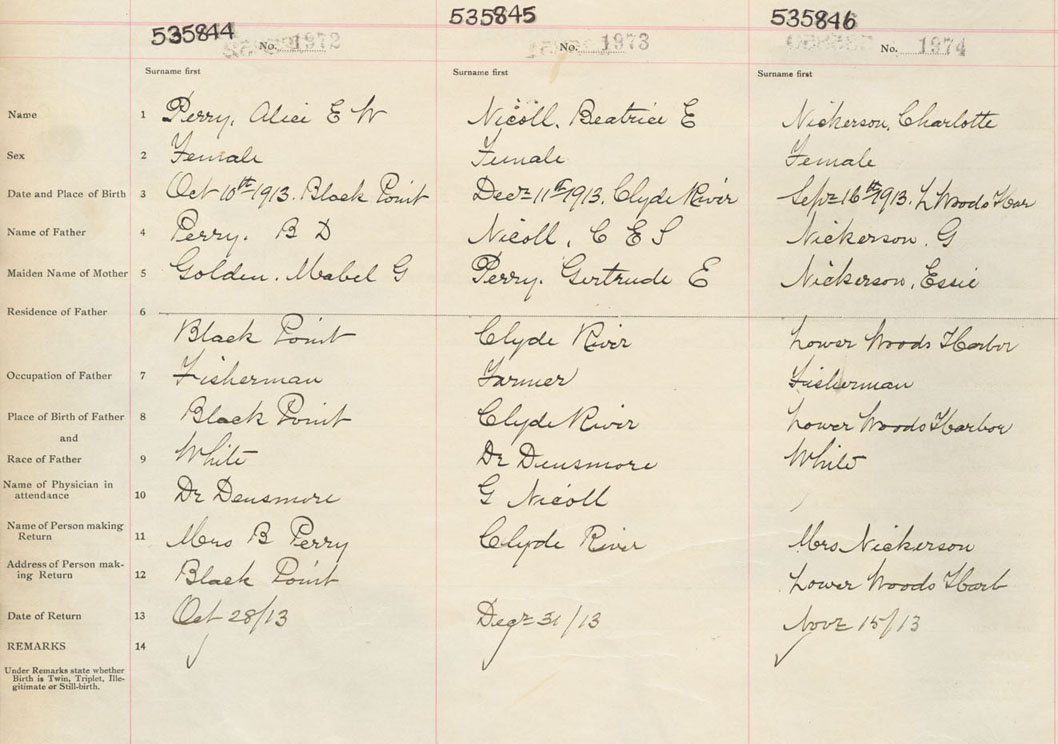 535844 535845 535846
No. 1972 No. 1973 No. 1974
Surname first Surname first Surname first
Name 1 Perry, Alice E W Nicoll, Beatrice E Nickerson, Charlotte
Sex 2 Female Female Female
Date and Place of Birth 3 Oct 10th 1913. Black Point Decr 11th 1913. Clyde River Sept 16th 1913. L Woods Har
Name of Father 4 Perry. B D Nicoll, C E S Nickerson. G
Maiden Name of Mother 5 Golden. Mabel G Perry. Gertrude E Nickerson, Essie
Residence of Father 6
Black Point Clyde River Lower Woods Harbor
Occupation of Father 7 Fisherman Farmer Fisherman
Place of Birth of Father 8 Black Point Clyde River Lower Woods Harbor
and
Race of Father 9 White Dr Densmore White
Name of Physician in
attendance 10 Dr Densmore G Nicoll
Name of Person making
Return 11 Mrs B Perry Clyde River Mrs Nickerson
Address of Person mak-
ing Return 12 Black Point Lower Woods Harb
Date of Return 13 Oct 28/13 Decr 31/13 Novr 15/13
REMARKS 14
Under Remarks state whether
Birth is Twin, Triplet, Ille-
gitimate or Still-birth.